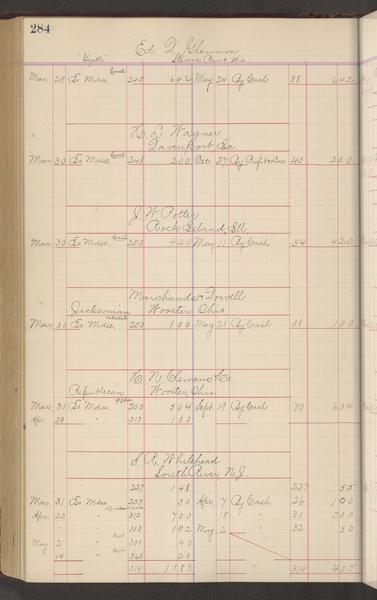 284
Ed. D. Glennon
"Gazette" Stevens Point Wis
Mar. 29 To Mdse. Cash 245 6 42 May 24 By Cash 38 6 42
H. L. Wagner
Davenport Ia.
Mar. 30 To Mdse 248 2 00 Dec. 27 By Profit & Loss 45 2 00
J. W. Potter
Rock Island, Ill.
Mar. 30 To Mdse. 250 4 20 May 11 By Cash 34 4 20
Marchand & Dowell
Jacksonian Wooster Ohio
Mar. 30 To Mdse. 250 1 00 May 21 By Cash 38 1 00
H. N. Clemens & Co.
Republican Wooster, Ohio.
Mar. 30 To Mdse 250 5 04 Sept. 19 By Cash 70 6 04
Apr. 29 " " 313 1 00
S. R. Whitehead
South River N.J.
227 1 48 227 55
Mar. 31 To Mdse 253 50 Apr. 7 By Cash 26 1 00
Apr. 23 " 312 7 00 18 " 30 2 00
" 313 1 92 May 2 " 32 50
May 2 " 300 40
14 " 365 20
314 11 80 314 4 05